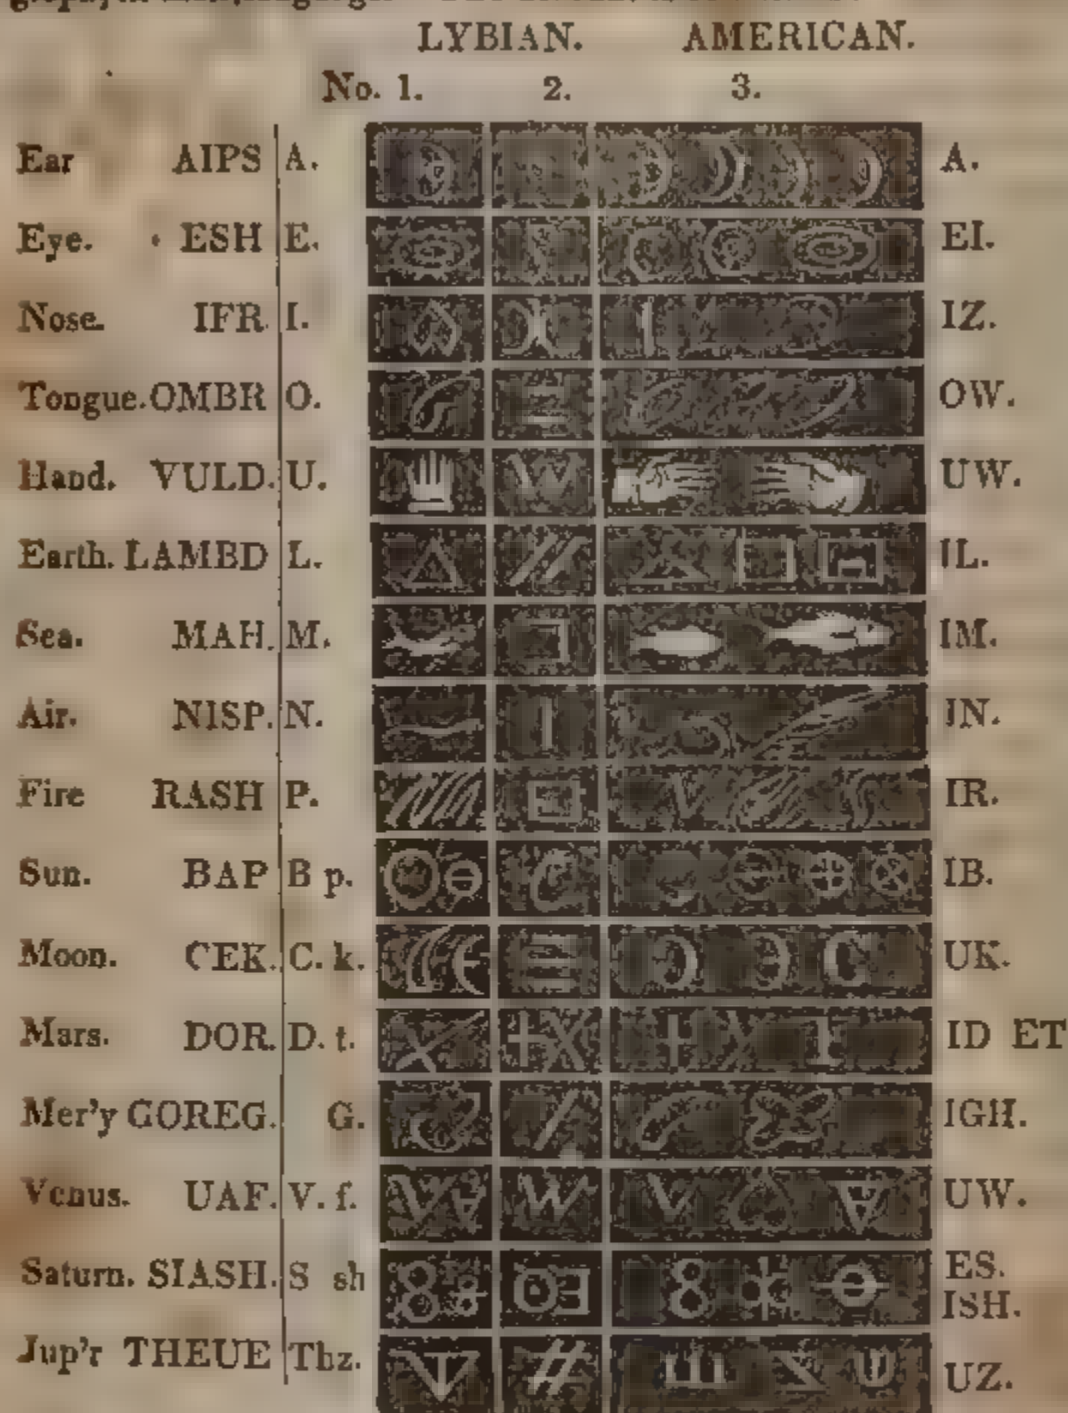 LYBIAN. AMERICAN.
No. 1. 2. 3.
Ear AIPS A. A.
Eye. ESH E. EI.
Nose. IFR I. IZ.
Tongue. OMBR O. OW.
Hand. VULD. U. UW.
Earth. LAMBD L. IL.
Sea. MAH. M. IM.
Air. NISP. N. IN.
Fire RASH P. IR.
Sun. BAP B p. IB.
Moon. CEK. C. k. UK.
Mars. DOR. D. t. ID ET
Mer'y GOREG. G. IGH.
Venus. UAF. V. f. UW.
Saturn. SIASH. S sh ES.
ISH.
Jup'r THEUE Thz. UZ.